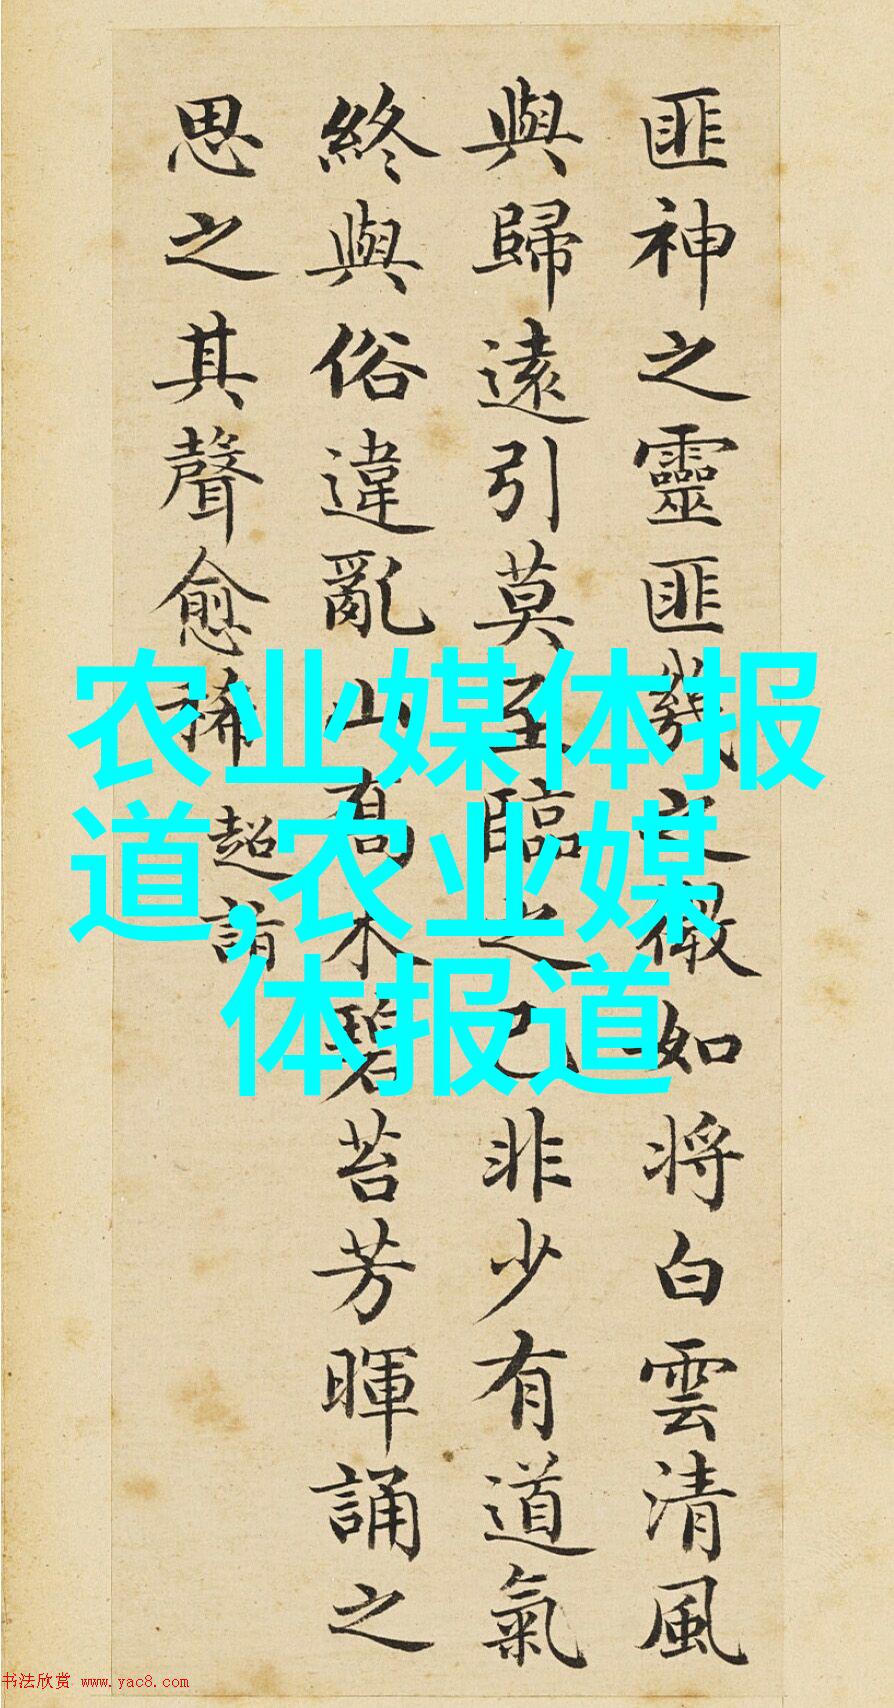 匪神之靈匪幾之微如将白雲清風
與歸遠引莫至臨之已非少有道氣
終與俗違亂山高木碧苔芳暉誦之
思之其聲愈稀
超詣
农业媒体报
道,农业媒
体报道
书法欣赏 www.yac8.com